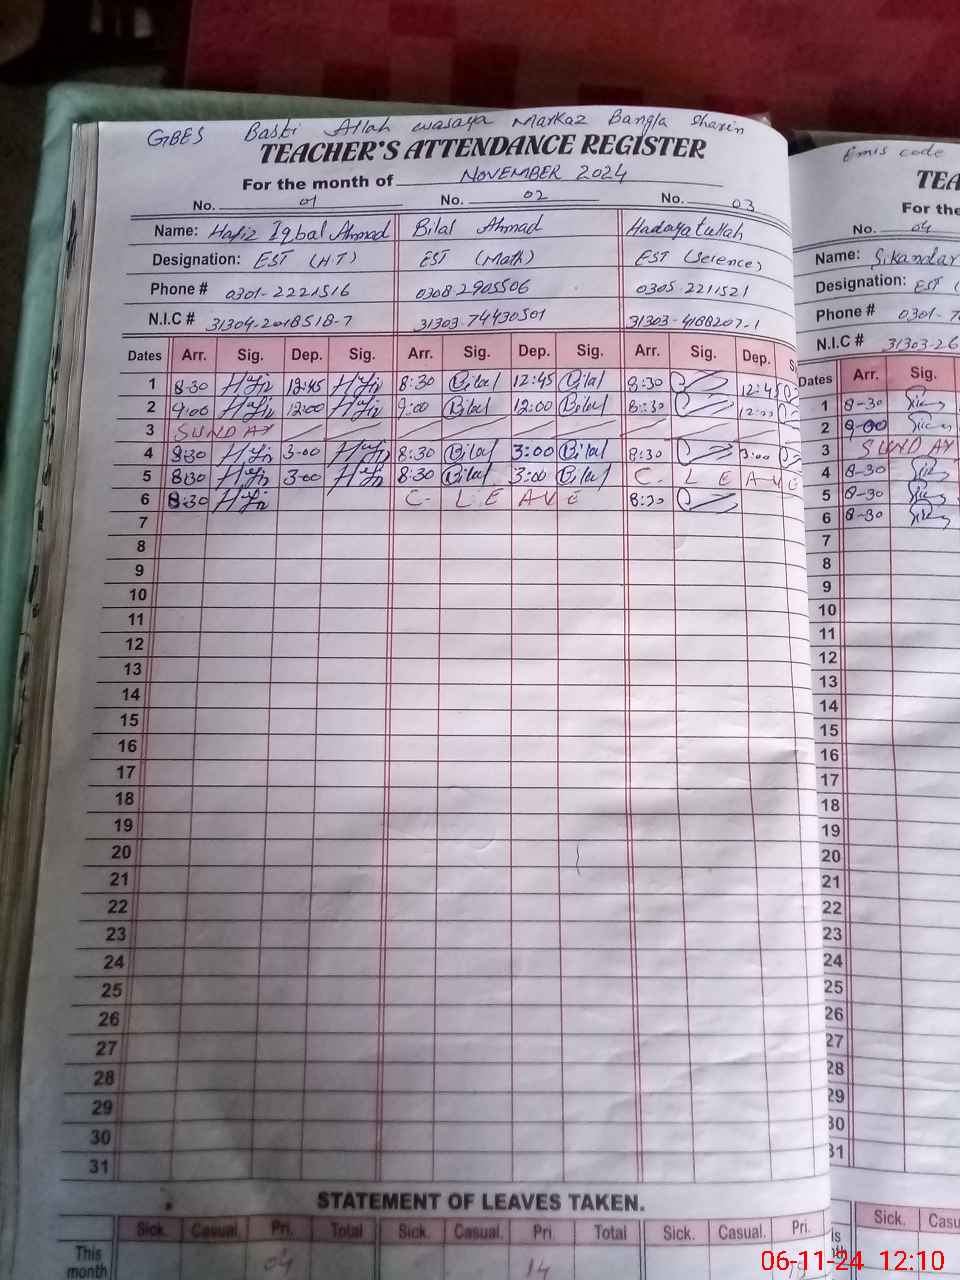 GBES Basti Allah wasaya Markaz Bangla Sharin
TEACHER'S ATTENDANCE REGISTER
For the month of NOVEMBER 2024
No. 01 No. 02 No. 03
Name: Hafiz Iqbal Ahmad Bilal Ahmad Hadayatullah
Designation: EST (H.T) EST (Math) EST (Science)
Phone # 0301-2221516 0308 2905506 0305-2211521
N.I.C # 31304-2018518-7 31303-7443050 1 31303-4188207-1
Dates Arr. Sig. Dep. Sig. Arr. Sig. Dep. Sig. Arr. Sig. Dep.
1 8-30 Hafiz 12:45 Hafiz 8:30 Bilal 12:45 Bilal 8:30 12:45
2 9:00 Hafiz 12:00 Hafiz 9:00 Bilal 12:00 Bilal 8:30 12:00
3 SUNDAY
4 8:30 Hafiz 3-00 Hafiz 8:30 Bilal 3:00 Bilal 8:30 3:00
5 8:30 Hafiz 3-00 Hafiz 8:30 Bilal 3:00 Bilal C. LEAVE
6 8:30 Hafiz C- LEAVE 8:30
7
8
9
10
11
12
13
14
15
16
17
18
19
20
21
22
23
24
25
26
27
28
29
30
31
STATEMENT OF LEAVES TAKEN.
Sick. Casual. Pri. Total Sick. Casual. Pri Total Sick. Casual. Pri.
This month 04 14
Emis code
TEA
For the
No. 04
Name: Sikandar
Designation: EST (
Phone # 0301-7
N.I.C # 31303-26
Dates Arr. Sig.
1 8-30
2 9-00
3 SUNDAY
4 8-30
5 8-30
6 8-30
7
8
9
10
11
12
13
14
15
16
17
18
19
20
21
22
23
24
25
26
27
28
29
30
31
Sick. Casu
06-11-24 12:10